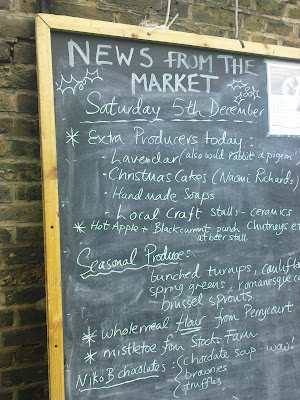 NEWS FROM THE
MARKET
Saturday 5th December
* Extra Producers today:
· Lavendar (also wild rabbit & pigeon
· Christmas Cakes (Naomi Richards)
· Handmade Soaps
· Local Craft stalls - ceramics
* Hot Apple + Blackcurrant punch Chutneys
at beer stall
Seasonal Produce:
bunched turnips,
spring greens, romanesque
brussel sprouts
* wholemeal flour from Perrycourt
* mistletoe from Stocks Farm
Niko B chocolates: chocolate soap
brownies
truffles